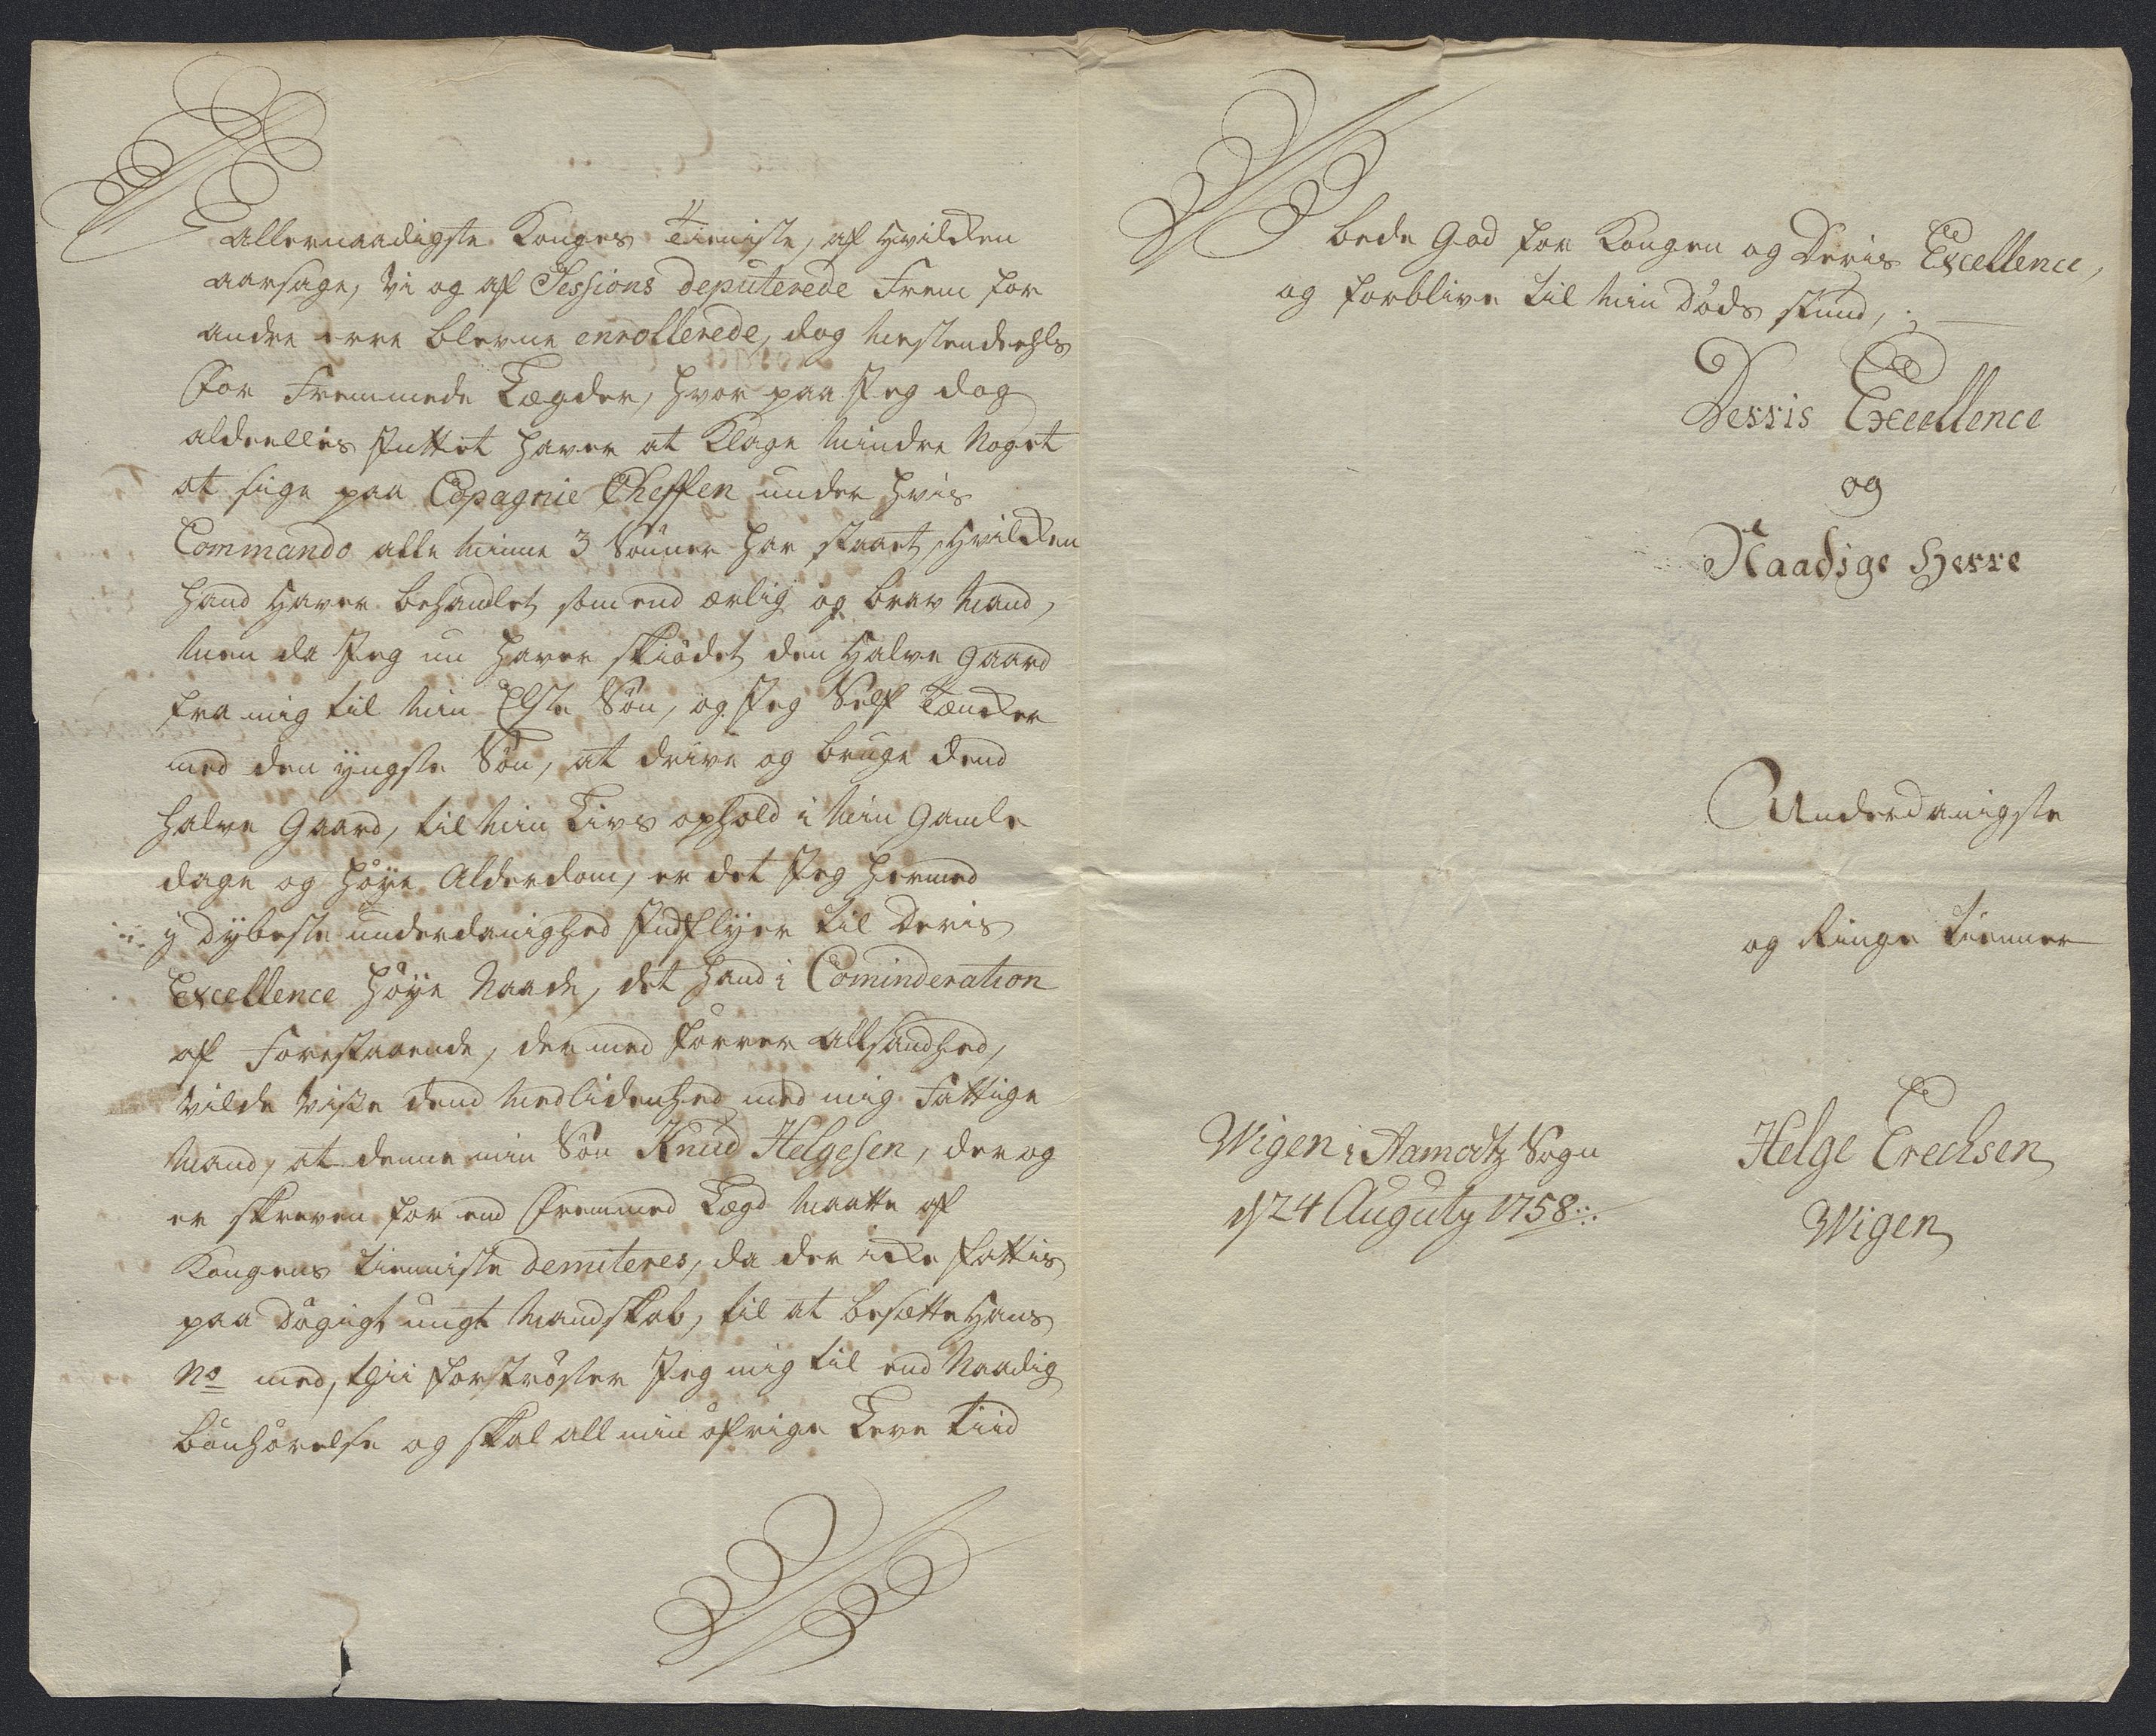 allernaadigste Konges Tieniste, af Hvilken
aarsage, Vi og af Sessions deputerede Frem for
andre erre blevne enrollerede, dog Mestendeehls
for Fremmede Lægder, hvor paa Jeg dog
aldeelles Inttet haver at Klage Mindre Noget
at siige paa Copagnie Cheffen under hvis
Commando alle Minne 3 Sønner har staaet, Hvilken
hand Haver behandlet som end ærlig og brav Mand,
Men da Jeg nu haver skiødet den Halve Gaard
fra mig til Min Elste Søn, og Jeg Self Tæncker
med den yngste Søn, at drive og bruge dend
halve Gaard, til Min Livs ophold i Min Gamle
dage og høye Alderdom, er det Jeg hermed
y dybeste underdanighed Indflyer til Deris
Excellence høye Naade, det hand i Cominderation
af Forestaaende, der med fører all sandhed,
Vilde Viise dend Medlidenhed med mig Fattige
Mand, at denne min Søn Knud Helgesen, der og
er skreven for end Fremmed Lægd Maatte af
Kongens Tienniste demiteres, da der icke fattis
paa dügigt ungt Mandskab, til at besætte Hans
No med, thi forstrøster Jeg mig til end Naadig
bønhørelse og skal all min øfrige Leve Tiid
bede Gud for Kongen og Deris Excellence,
og forblive til Min Døds stund,
Derris Excellence
og
Naadige Herre
Underdanigste
og Ringe Tienner
Wigen i Aamodtz Sogn
d 24 Augusty 1758
Helge Erechsen
Wigen